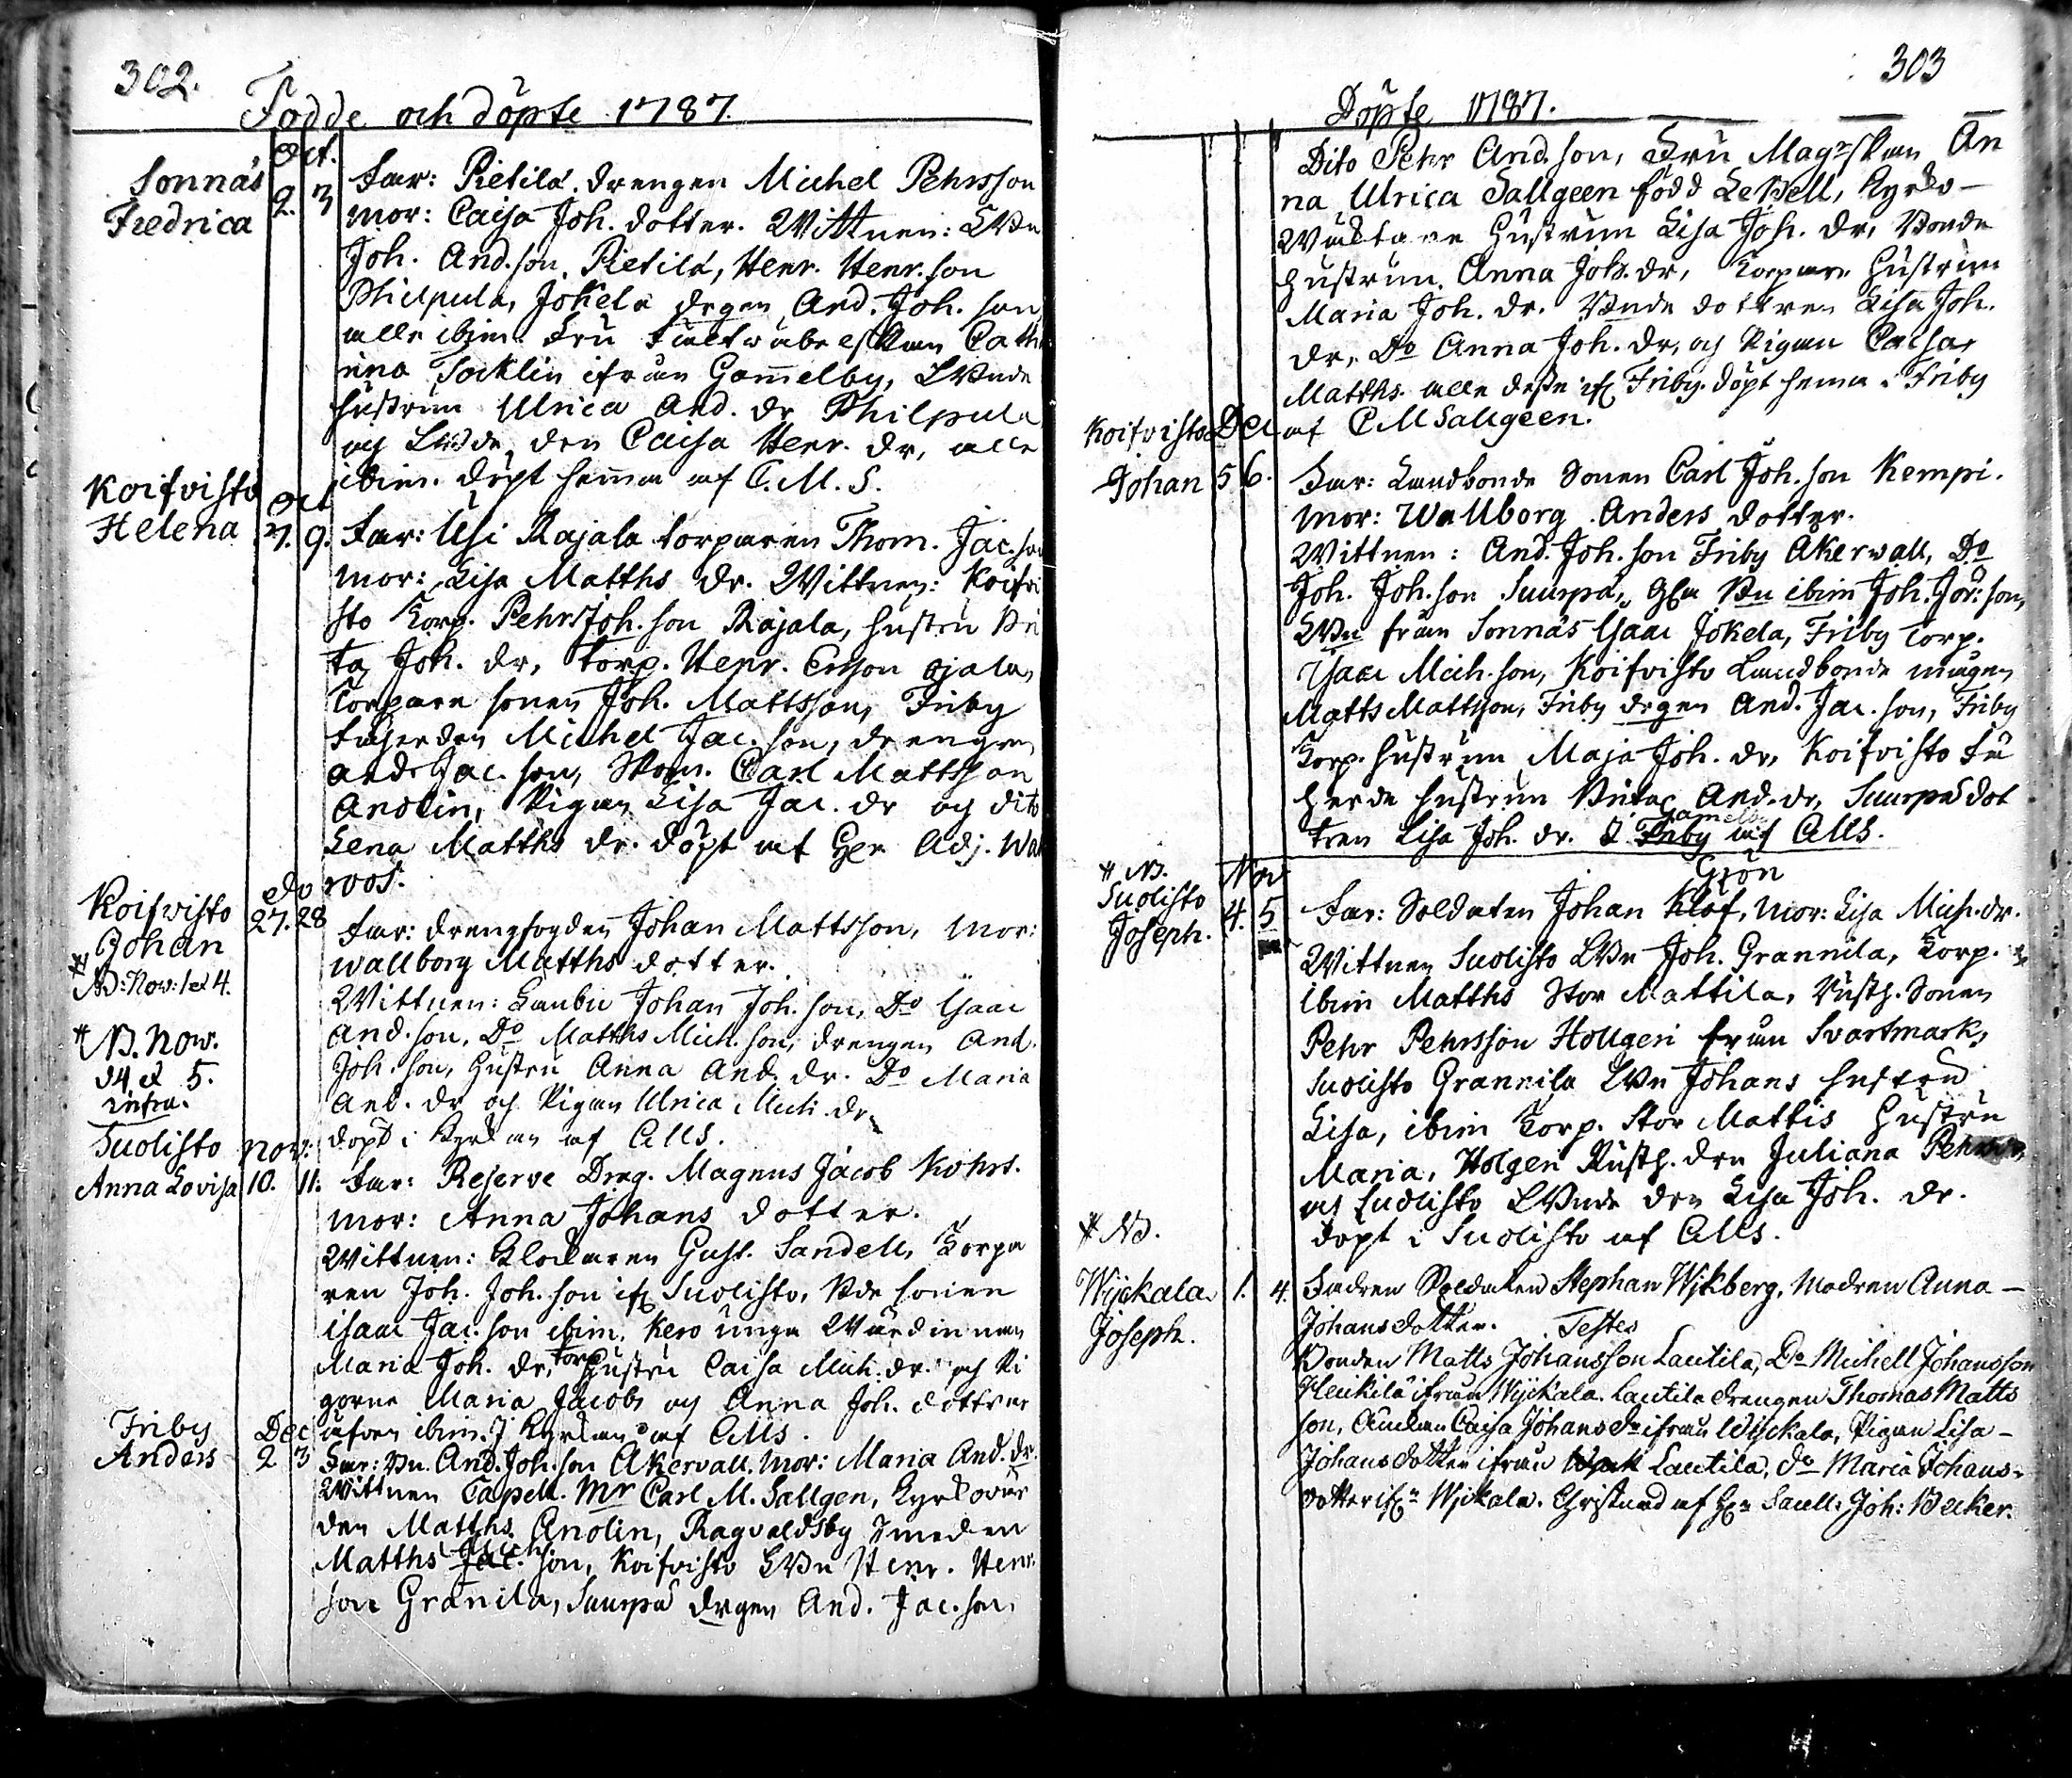 302.
Födde och döpte 1787.
Oct.
Sonnäs
Fredrica
2. 3
Far: Pietilä drengen Michel Pehrsson
mor: Caisa Joh. dotter. Wittnen: LBn
Joh. And.son Pietilä, Henr. Henr.son
Philpula, Jokela drgen And. Joh. son
alle ibim. Fru Fältwäbelskan Cath
rina Tocklin ifrån Gammelby, LBnde
hustrun Ulrica And. dr Philpula
och LBde dren Caisa Henr. dr, alle
ibim. döpt hemma af C. M. S.
Koifvisto
Helena
Oct
7. 9.
Far: Usi Rajala torparen Thom. Jac.son
mor: Lisa Matths dr. Wittnen: Koifvi
sto Torp. Pehr Joh. son Rajala, hustru Bri
ta Joh. dr, Torp. Henr. Ersson Ojala,
Torpare sonen Joh. Mattsson, Friby
Michel Jac. son, drengen
And. Jac. son, Carl Mattsson
Anolin, Pigan Lisa Jac. dr och dito
Lena Matths dr. döpt af Hr Adj. Wal
roos.
Koifvisto
Johan
NB: Nov: 1 et 4.
do
27. 28
Far: drengfogden Johan Mattsson, mor:
Wallborg Matths dotter.
Wittnen: Lanbu Johan Joh. son, Do Isaac
And. son, Do Matths Mich. son, drengen And.
Joh. son, hustru Anna And. dr. Do Maria
And. dr och Pigan Ulrica Mich. dr
döpt i Kyrkan af CMS.
NB. Nov.
d 4 et 5.
infra.
Suolisto
Anna Lovisa
nov:
10. 11.
Far: Reserve Drag. Magnus Jacob Kohrs.
mor: Anna Johans dotter.
Wittnen: Klockaren Gust. Sandell, Torpa
ren Joh. Joh. son if Suolisto, Bde sonen
Isaac Jac. son ibim. Kero unga Wärdinnan
Maria Joh. dr, torp hustru Caisa Mich. dr. och Pi
gorne Maria Jacobs och Anna Joh. dottrar
äfven ibim. I Kyrkan af CMS.
Friby
Anders
Dec
2 3
Far: Bn. And. Joh. son Åkervall. mor: Maria And. dr.
Wittnen Capell. Mr Carl M. Sallgen, Kyrkovär
den Matths Anolin, Ragvaldsby Smeden
Matths Jac. Mich son, Koifvisto LBn Henr. Henr.
son Granila, Suurpä drgen And. Jac. son,
303
Döpte 1787.
Dito Pehr And. son, Fru Magrskan An
na Ulrica Sallgeen född Lepell, Kyrko-
Wäktare Hustrun Lisa Joh. dr, Bonde
hustrun Anna Joh. dr, Torpare Hustrun
Maria Joh. dr. Bnde dottren Lisa Joh.
dr, Do Anna Joh. dr, och Pigan Caisa
Matths. alle desse if Friby. döpt hemma i Friby
af CM Sallgeen.
Koifvisto
Johan
Dec
5 6.
Far: Landbonde Sonen Carl Joh. son Kempi.
mor: Wallborg Anders dotter.
Wittnen: And. Joh. son Friby Åkerwall, Do
Joh. Joh. son Suurpä, Bn ibim Joh. Jör: son,
LBn från Sonnäs Isaac Jokela, Friby Torp.
Isaac Mich. son, Koifvisto Landbonde mågen
Matts Mattsson, Friby drgen And. Jac. son, Friby
Torp. hustrun Maja Joh. dr, Koifvisto Få
herde hustrun Brita And. dr, Suurpä dot
tren Lisa Joh. dr. i Friby Gamelb. af CMS.
NB.
Suolisto
Joseph.
Nov
4. 5
Far: Soldaten Johan Klof Grön, mor: Lisa Mich. dr.
Wittnen Suolisto LBn Joh. Grannila, Torp.
ibim Matths Stor Mattila, Rusth. Sonen
Pehr Pehrsson Hollgeri från Svartmark,
Suolisto Grannila LBn Johans hustru
Lisa, ibim Torp. Stor Mattis Hustru
Maria, Holgeri Rusth. dren Juliana Pehr
och Suolisto LBnde dren Lisa Joh. dr.
döpt i Suolisto af CMS.
NB.
Wijckala
Joseph.
1. 4.
Fadren Soldaten Stephan Wikberg, Modren Anna -
Johansdotter. Testes
Bonden Matts Johansson Lautila, Do Michell Johansson
Heickilä ifrån Wijckala. Lautila drengen Thomas Matts
son, Änckan Caisa Johans Dr ifrån Wijckala, Pigan Lisa -
Johansdotter ifrån Lautila, do Maria Johans-
dotter ifrn Wijckala. Christnad af Hrn Sacell: Joh: Becker.